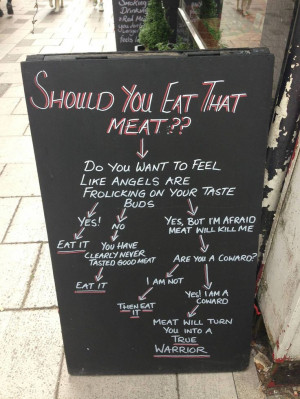 Smoking
Drinking
+ Red Meat
SHOULD YOU EAT THAT
MEAT??
DO YOU WANT TO FEEL
LIKE ANGELS ARE
FROLICKING ON YOUR TASTE
BUDS
YES!
NO
YES, BUT I'M AFRAID
MEAT WILL KILL ME
EAT IT
YOU HAVE
CLEARLY NEVER
TASTED GOOD MEAT
EAT IT
ARE YOU A COWARD?
I AM NOT
THEN EAT
IT
YES! I AM A
COWARD
MEAT WILL TURN
YOU INTO A
TRUE
WARRIOR